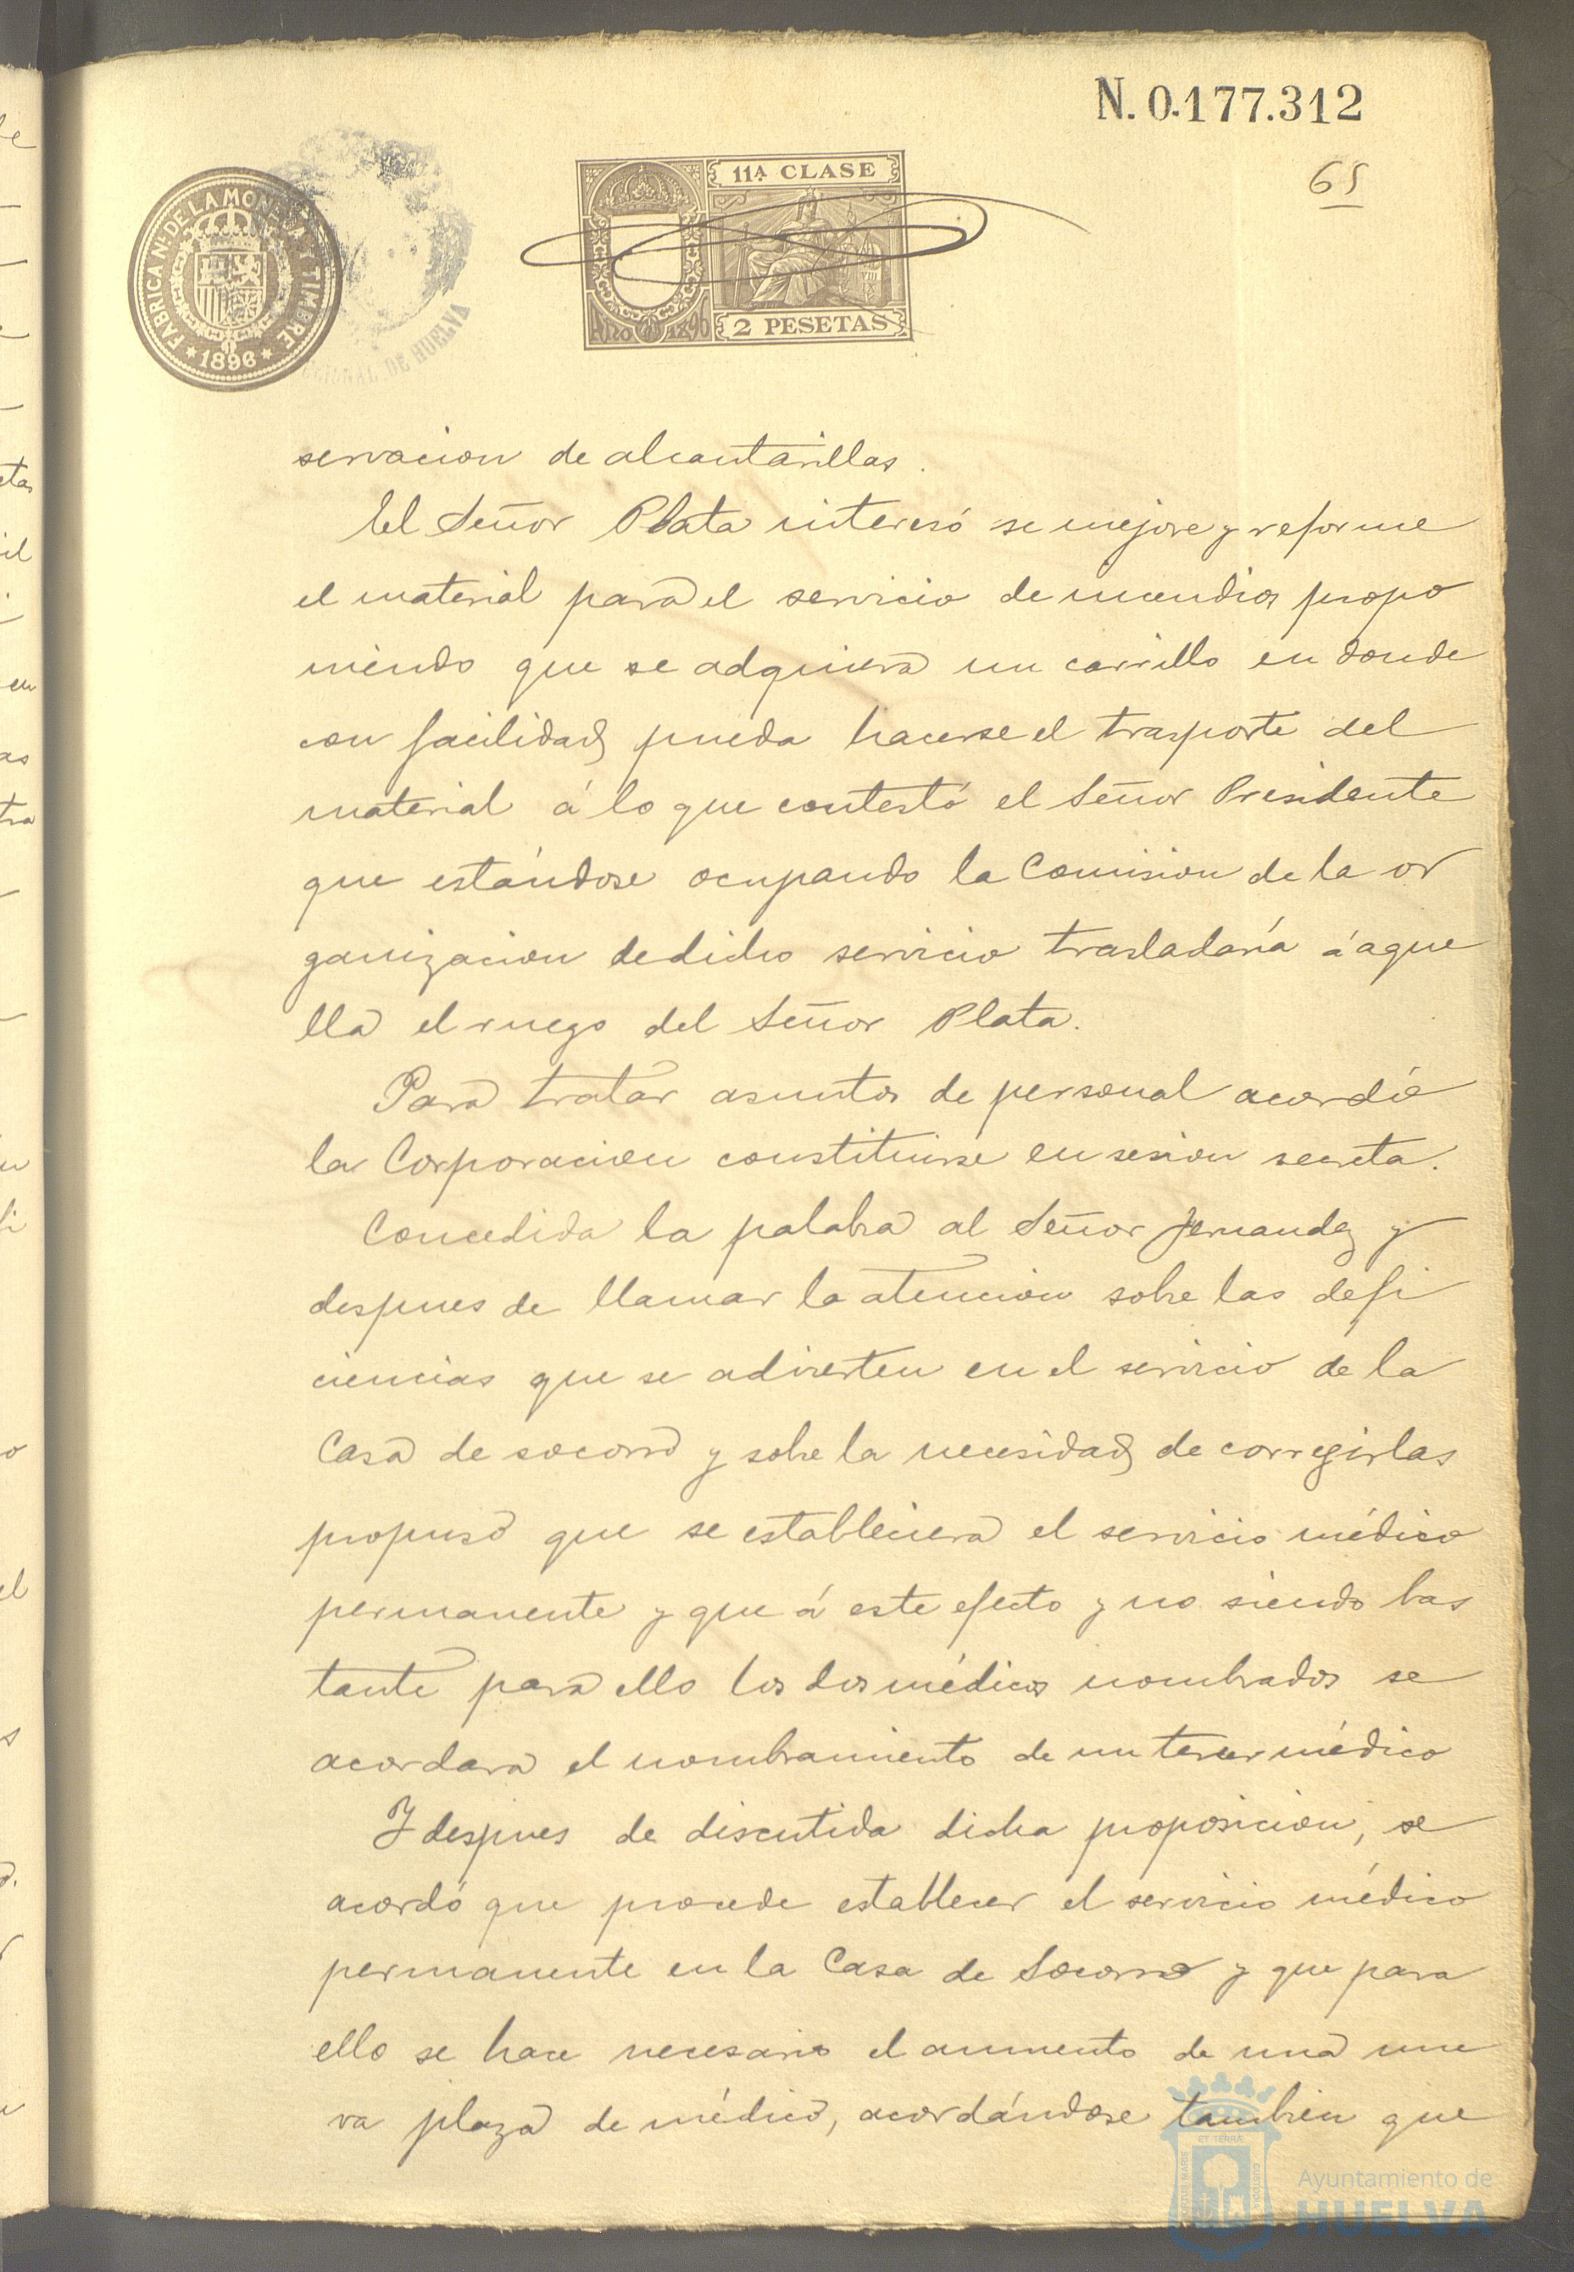 N. 0.177.312
65
FABRICA N. DE LA MONEDA Y TIMBRE
* 1896 *
DE HUELVA
11ª CLASE
AÑO 1896
2 PESETAS
servacion de alcantarillas.
El Señor Plata interesó se mejore y reforme
el material para el servicio de incendios propo
niendo que se adquiera un carrillo en donde
con facilidad pueda hacerse el trasporte del
material á lo que contestó el Señor Presidente
que estándose ocupando la Comision de la or
ganizacion de dicho servicio trasladaría á aque
lla el ruego del Señor Plata.
Para tratar asuntos de personal acordó
la Corporacion constituirse en sesion secreta.
Concedida la palabra al Señor Fernandez y
despues de llamar la atencion sobre las defi
ciencias que se advierten en el servicio de la
Casa de socorro y sobre la necesidad de corregirlas
propuso que se estableciera el servicio médico
permanente y que á este efecto y no siendo bas
tante para ello los dos médicos nombrados se
acordara el nombramiento de un tercer médico
Y despues de discutida dicha proposicion, se
acordó que procede establecer el servicio médico
permanente en la Casa de Socorro y que para
ello se hace necesario el aumento de una nue
va plaza de médico, acordándose tambien que
Ayuntamiento de
HUELVA